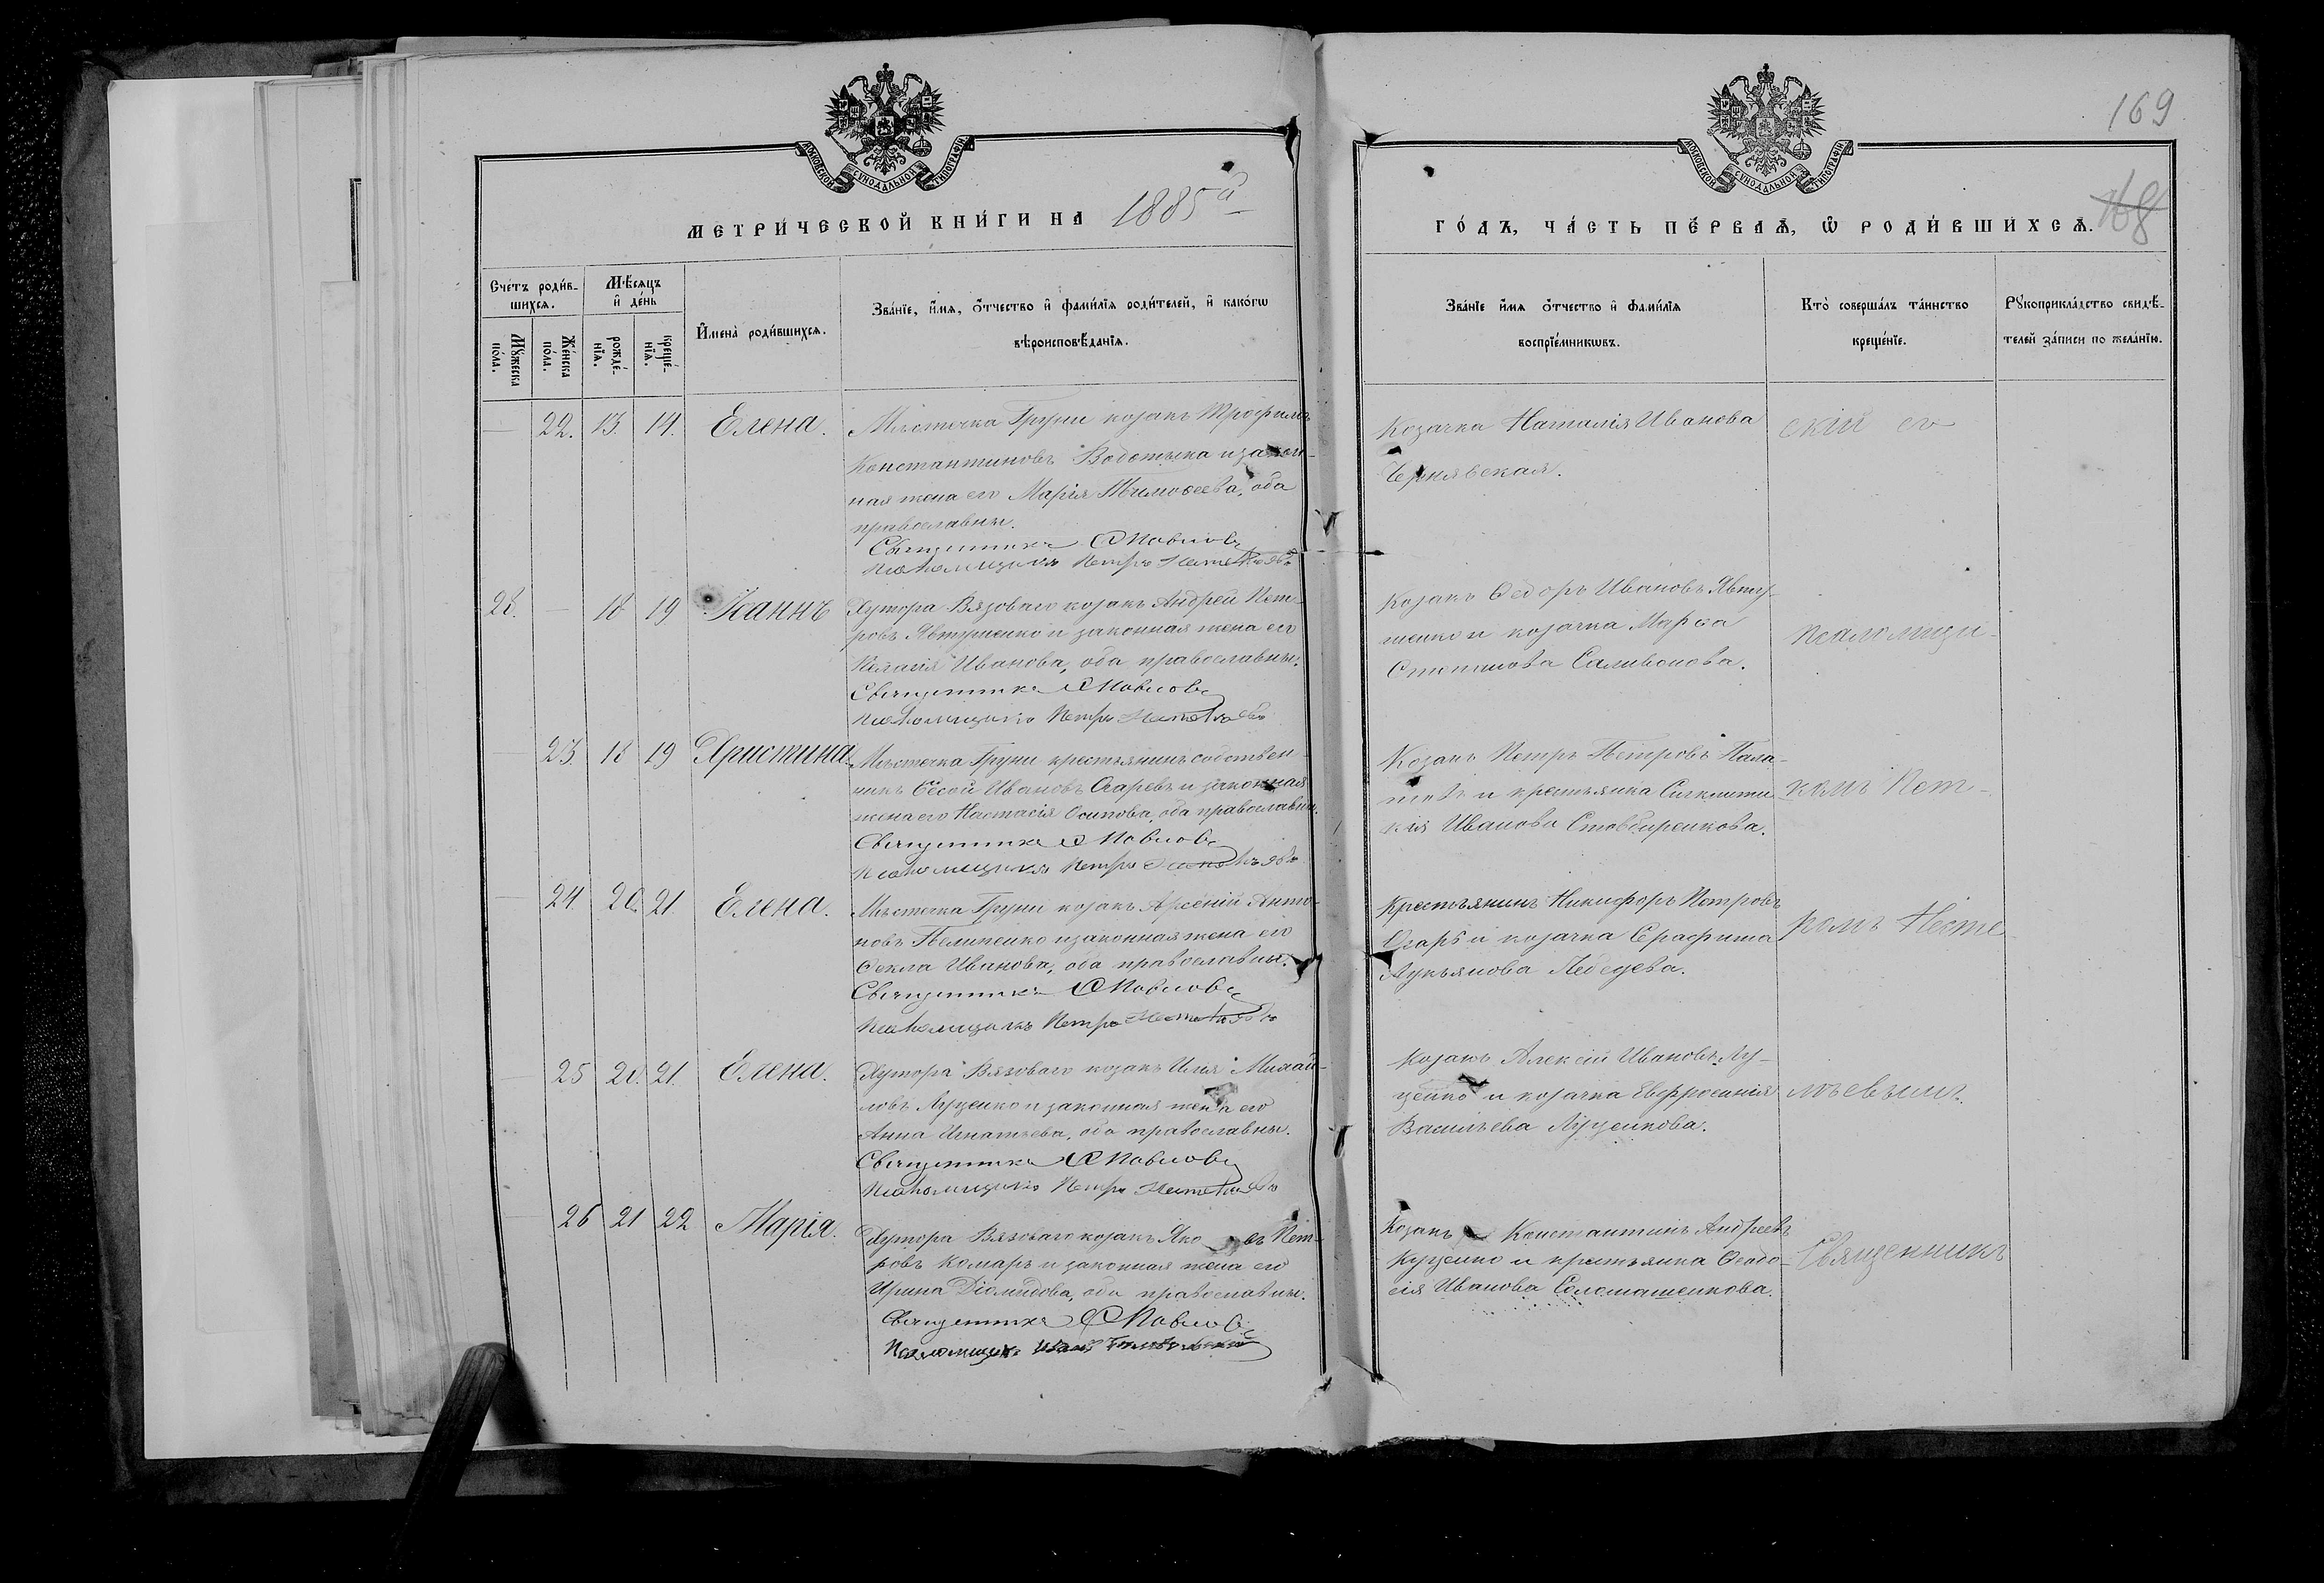 169
168
МОСКОВСКОЙ СУНОДАЛЬНОЙ ТИПОГРАФІИ
МОСКОВСКОЙ СУНОДАЛЬНОЙ ТИПОГРАФІИ
МЕТРИ́ЧЕСКОЙ КНИ́ГИ НА 1885й
ГО́ДЪ, ЧА́СТЬ ПЕ́РВАѦ, Ѽ РОДИ́ВШИХСѦ.
Сче́тъ роди́в-
шихсѧ.
Мꙋ́жеска по́ла.
Же́нска по́ла.
Мѣ́сѧцъ и де́нь
рожде́-нїѧ.
креще́-нїѧ.
И҆мена̀ роди́вшихсѧ.
Зва́нїе, и҆́мѧ, ѻ҆́тчество и҆ фами́лїѧ роди́телей, и҆ како́гѡ
вѣроисповѣ́данїѧ.
Зва́нїе и҆́мѧ ѻ҆́тчество и҆ фами́лїѧ
воспрїе́мникѡвъ.
Кто̀ соверша́лъ та́инство
креще́нїе.
Рꙋкоприкла́дство свидѣ́-
телей за́писи по жела́нїю.
22. 13. 14. Елена.
Мѣстечка Груни козакъ Трофимъ
Константиновъ Водотыка и закон-
ная жена его Марія Тимоѳеева, оба
православны.
Священникъ Павловъ
Псаломщикъ Петръ
Козачка Наталія Иванова
Чернявская.
скій съ
28. 18 19 Іоаннъ
Хутора Вязоваго козакъ Андрей Пет-
ровъ Явтушенко и законная жена его
Иванова, оба православны.
Священникъ Павловъ
Псаломщикъ Петръ
Козакъ Ѳедоръ Ивановъ Явту-
шенко и козачка Марѳа
Степанова Саливонова.
псаломщи-
23 18 19 Христина
Мѣстечка Груни крестьянинъ собствен-
никъ Сысой Ивановъ и законная
жена его Настасія Осипова, оба православны.
Священникъ Павловъ
Псаломщикъ Петръ
Козакъ Петръ Петровъ Пала-
и крестьянка
Иванова
комъ Пет-
24. 20. 21. Елена.
Мѣстечка Груни козакъ Арсеній Анто-
новъ Пелипенко и законная жена его
Ѳекла Иванова, оба православны.
Священникъ Павловъ
Псаломщикъ Петръ
Крестьянинъ Никифоръ Петровъ
и козачка Серафима
Лукьянова Лебедева.
ромъ Несте-
25 20. 21. Елена.
Хутора Вязоваго козакъ Илія Михай-
ловъ Луценко и законная жена его
Анна Игнатьева, оба православны.
Священникъ Павловъ
Псаломщикъ Петръ
Козакъ Алексій Ивановъ Лу-
ценко и козачка Евфросинія
Васильева Луценкова.
26 21 22 Марія.
Хутора Вязоваго козакъ Яковъ Пет-
ровъ Комаръ и законная жена его
Ирина Діомидова, оба православны.
Священникъ Павловъ
Псаломщикъ
Козакъ Константинъ Андреевъ
Куценко и крестьянка Ѳеодо-
сія Иванова Соломашенкова.
Священникъ